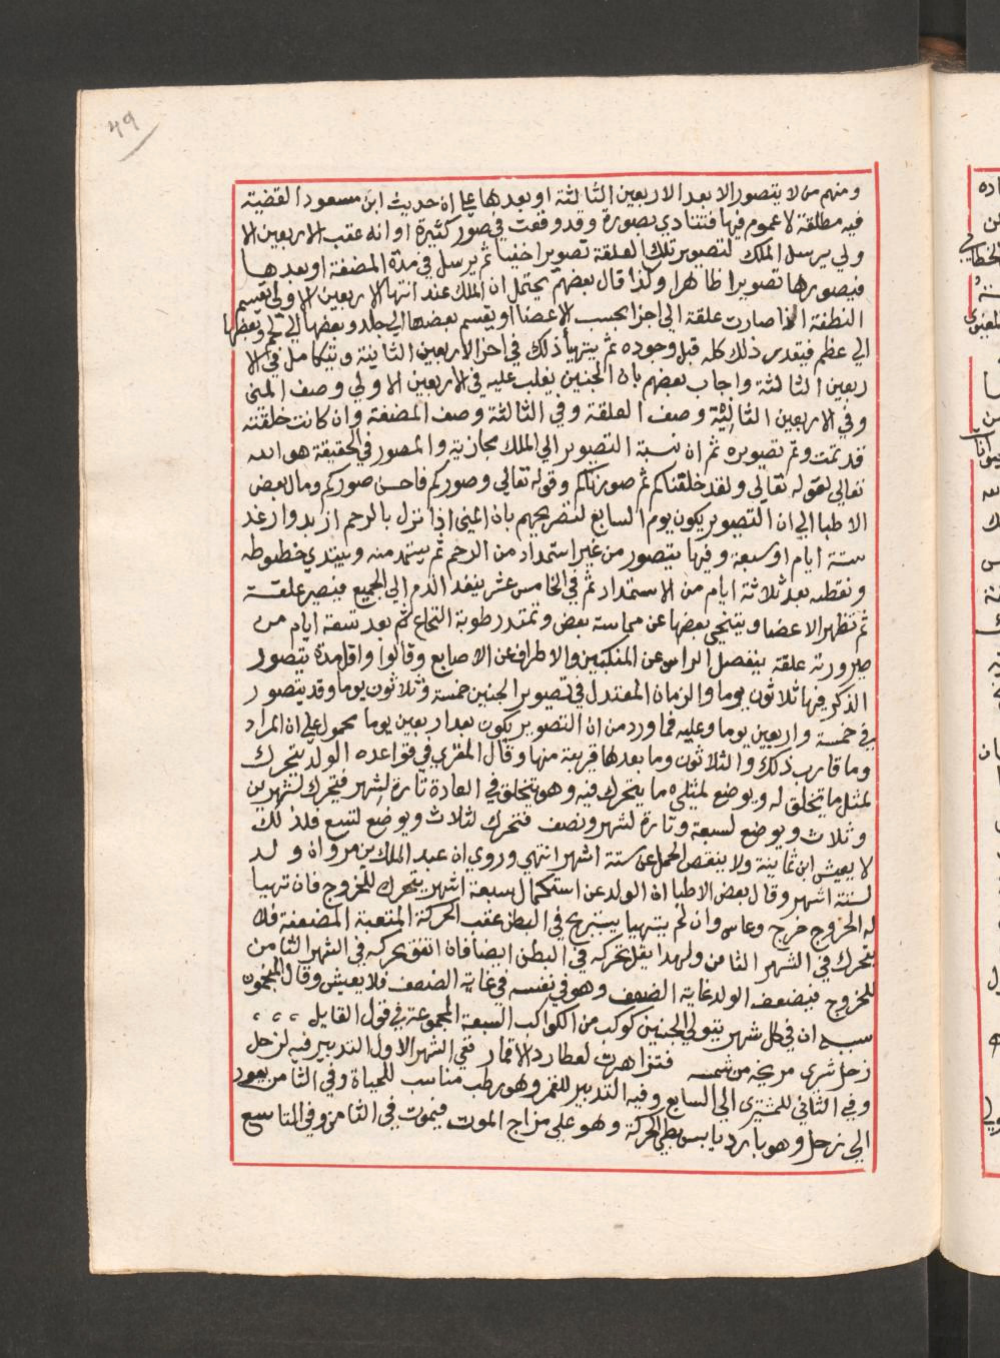 49
ومنهم من لا يتصور الا بعد الاربعين الثالثة او بعدها علي ان حديث ابن مسعود القضية
فيه مطلقة لا عموم فيها فتتادي بصورة وقد وقعت في صور كثيرة او انه عقب الاربعين الا
ولي يرسل الملك لتصوير تلك العلقة تصويرا خفيا ثم يرسل في مدة المضغة او بعدها
فيصورها تصويرا ظاهرا ولذا قال بعضهم يحتمل ان الملك عند انتها الاربعين الاولي يقسم
النطفة اذا صارت علقة الي اجزا بحسب الاعضا او يقسم بعضها الي جلد وبعضها الي لحم وبعضها
الي عظم فيقدر ذلك كله قبل وجوده ثم يتهيأ ذلك في اخر الاربعين الثانية ويتكامل في الا
ربعين الثالثة واجاب بعضهم بان الجنين يغلب عليه في الاربعين الاولي وصف المني
وفي الاربعين الثانية وصف العلقة وفي الثالثة وصف المضغة وان كانت خلقته
قد تمت وتم تصويره ثم ان نسبة التصوير الي الملك مجازية والمصور في الحقيقة هو الله
تعالي لقوله تعالي ولقد خلقناكم ثم صورناكم وقوله تعالي وصوركم فاحسن صوركم ومال بعض
الاطبا الي ان التصوير يكون يوم السابع لتصريحهم بان المني اذا نزل بالرحم ازبد وارغد
ستة ايام او سبعة وفيها يتصور من غير استمداد من الرحم ثم يستمد منه ويبتدي خطوطه
ونقطه بعد ثلاثة ايام من الاستمداد ثم في الخامس عشر ينفذ الدم الي الجميع فيصير علقة
ثم تظهر الاعضا ويتنحي بعضها عن مماسة بعض وتمتد رطوبة النخاع ثم بعد تسعة ايام من
صيرورته علقة ينفصل الراس عن المنكبين والاطراف عن الاصابع وقالوا واقل مدة يتصور
الذكر فيها ثلاثون يوما والزمان المعتدل في تصوير الجنين خمسة وثلاثون يوما وقد يتصور
في خمسة واربعين يوما وعليه فما ورد من ان التصوير يكون بعد اربعين يوما محمول علي ان المراد
وما قارب ذلك والثلاثون وما بعدها قريبة منها وقال المقري في قواعده الولد يتحرك
لمثل ما تخلق له ويوضع لمثلي ما يتحرك فيه وهو يتخلق في العادة تارة لشهر فيتحرك لشهرين
وثلاث ويوضع لسبعة وتارة لشهر ونصف فتحرك لثلاث ويوضع لتسع فلذلك
لا يعيش ابن ثمانية ولا ينقص الحمل عن ستة اشهر انتهي وروي ان عبد الملك بن مروان ولد
لستة اشهر وقال بعض الاطبا ان الولد عن استكمال سبعة اشهر يتحرك للخروج فان تهيا
له الخروج خرج وعاش وان لم يتهيا يستريح في البطن عقب الحركة المتعبة المضعفة فلا
يتحرك في الشهر الثامن ولهذا يقل تحركه في البطن ايضا فان اتفق تحركه في الشهر الثامن
للخروج فيضعف الولد غاية الضعف وهو في نفسه في غاية الضعف فلا يعيش وقال المنجمون
سببه ان في كل شهر يتولي الجنين كوكب من الكواكب السبعة المجموعة في قول القايل
زحل شري مريخه من شمسه فتزاهرت لعطارد الاقمار ففي الشهر الاول التدبير فيه لزحل
وفي الثاني للمشتري الي السابع وفيه التدبير للقمر وهو رطب مناسب للحياة وفي الثامن يعود
الي زحل وهو بارد يابس بطي الحركة وهو علي مزاج الموت فيموت في الثامن وفي التاسع